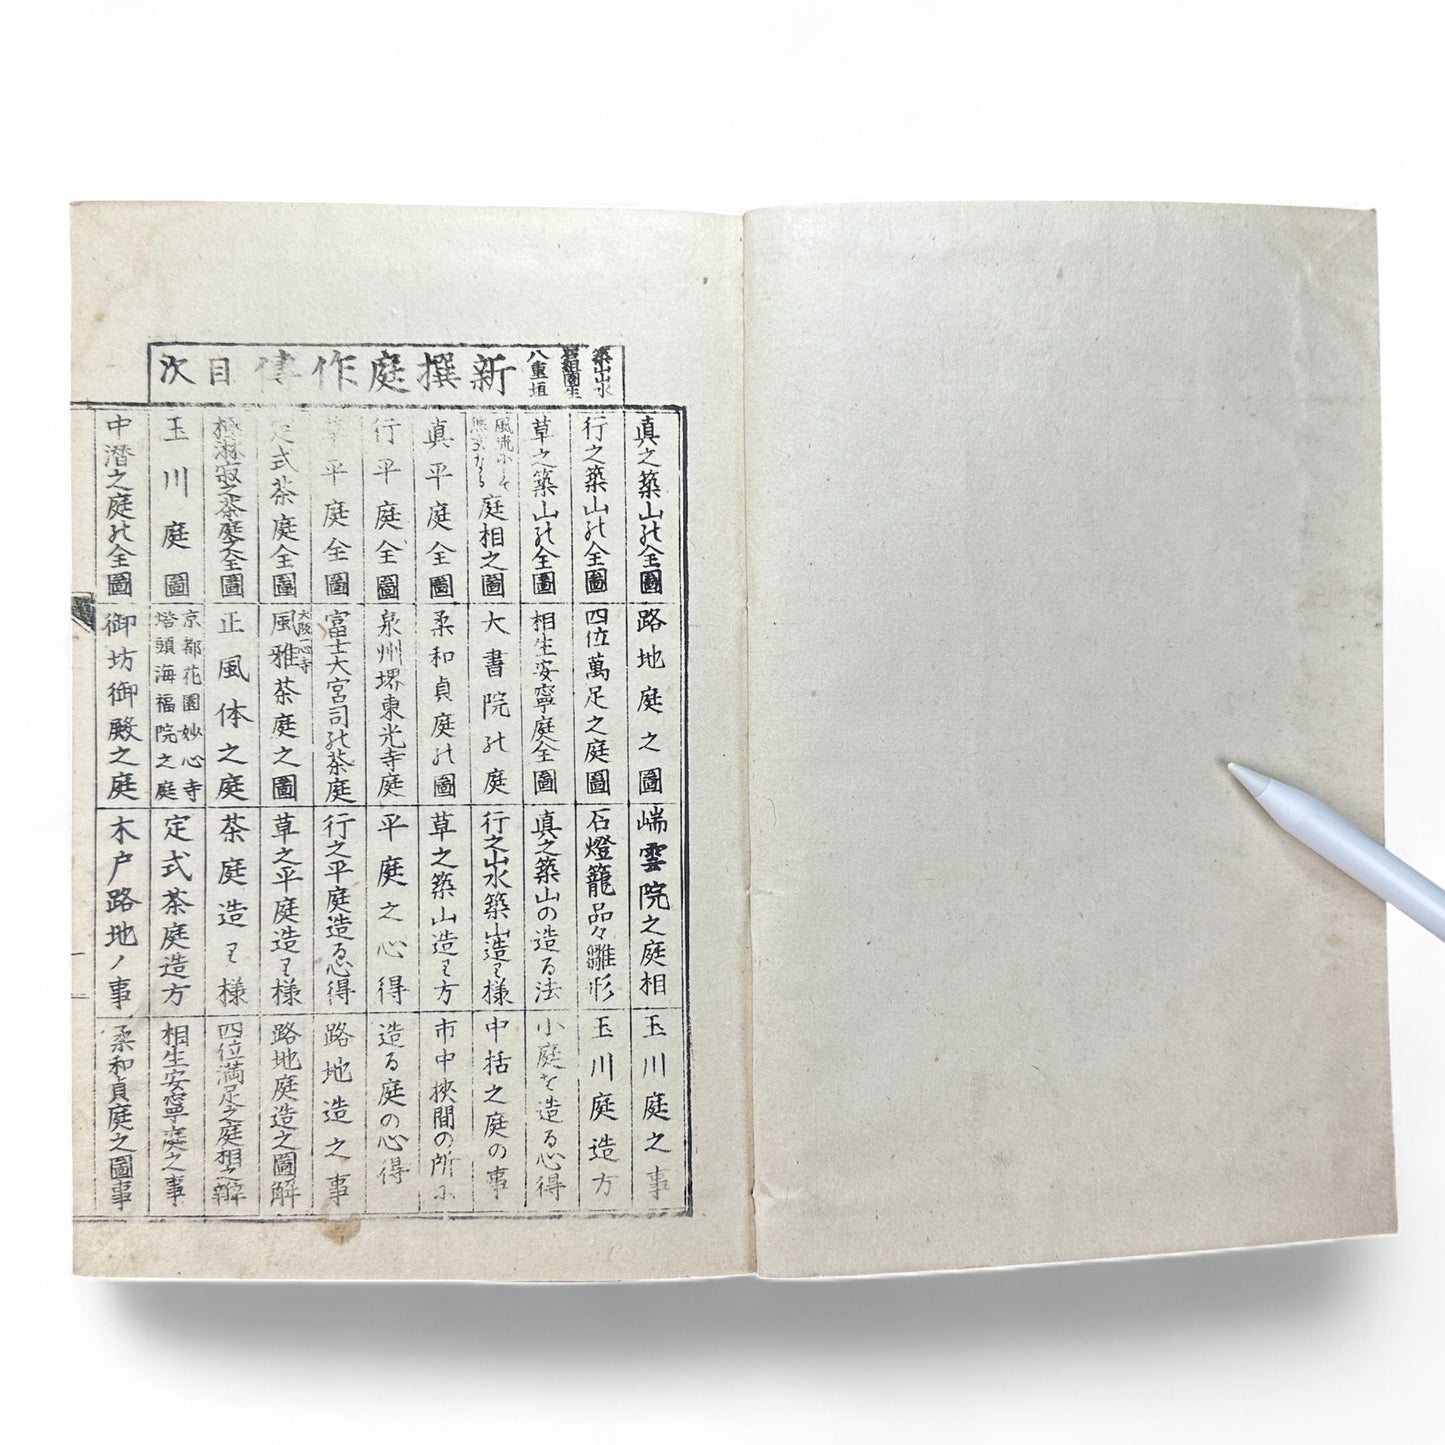 築山山水
八重垣
新撰庭作傳目次
真之築山の全圖
行之築山の全圖
草之築山の全圖
庭相之圖
真平庭全圖
行平庭全圖
草平庭全圖
定式茶庭全圖
極淋寂之茶庭之全圖
玉川庭圖
中潜之庭の全圖
路地庭之圖
四位萬足之庭圖
相生安寧庭全圖
大書院の庭
柔和貞庭の圖
泉州堺東光寺庭
富士大宮司の茶庭
大阪一心寺
風雅茶庭之圖
正風体之庭
京都花園妙心寺
塔頭海福院之庭
御坊御殿之庭
端雲院之庭相
石燈籠品々雛形
真之築山の造る法
行之山水築山造り様
草之築山造り方
平庭之心得
行之平庭造る心得
草之平庭造り様
茶庭造り様
定式茶庭造方
木戸路地ノ事
玉川庭之事
玉川庭造方
小庭を造る心得
中括之庭の事
市中挾間の所に
造る庭の心得
路地造之事
路地庭造之圖解
四位満足之庭相之解
相生安寧庭之事
柔和貞庭之圖事